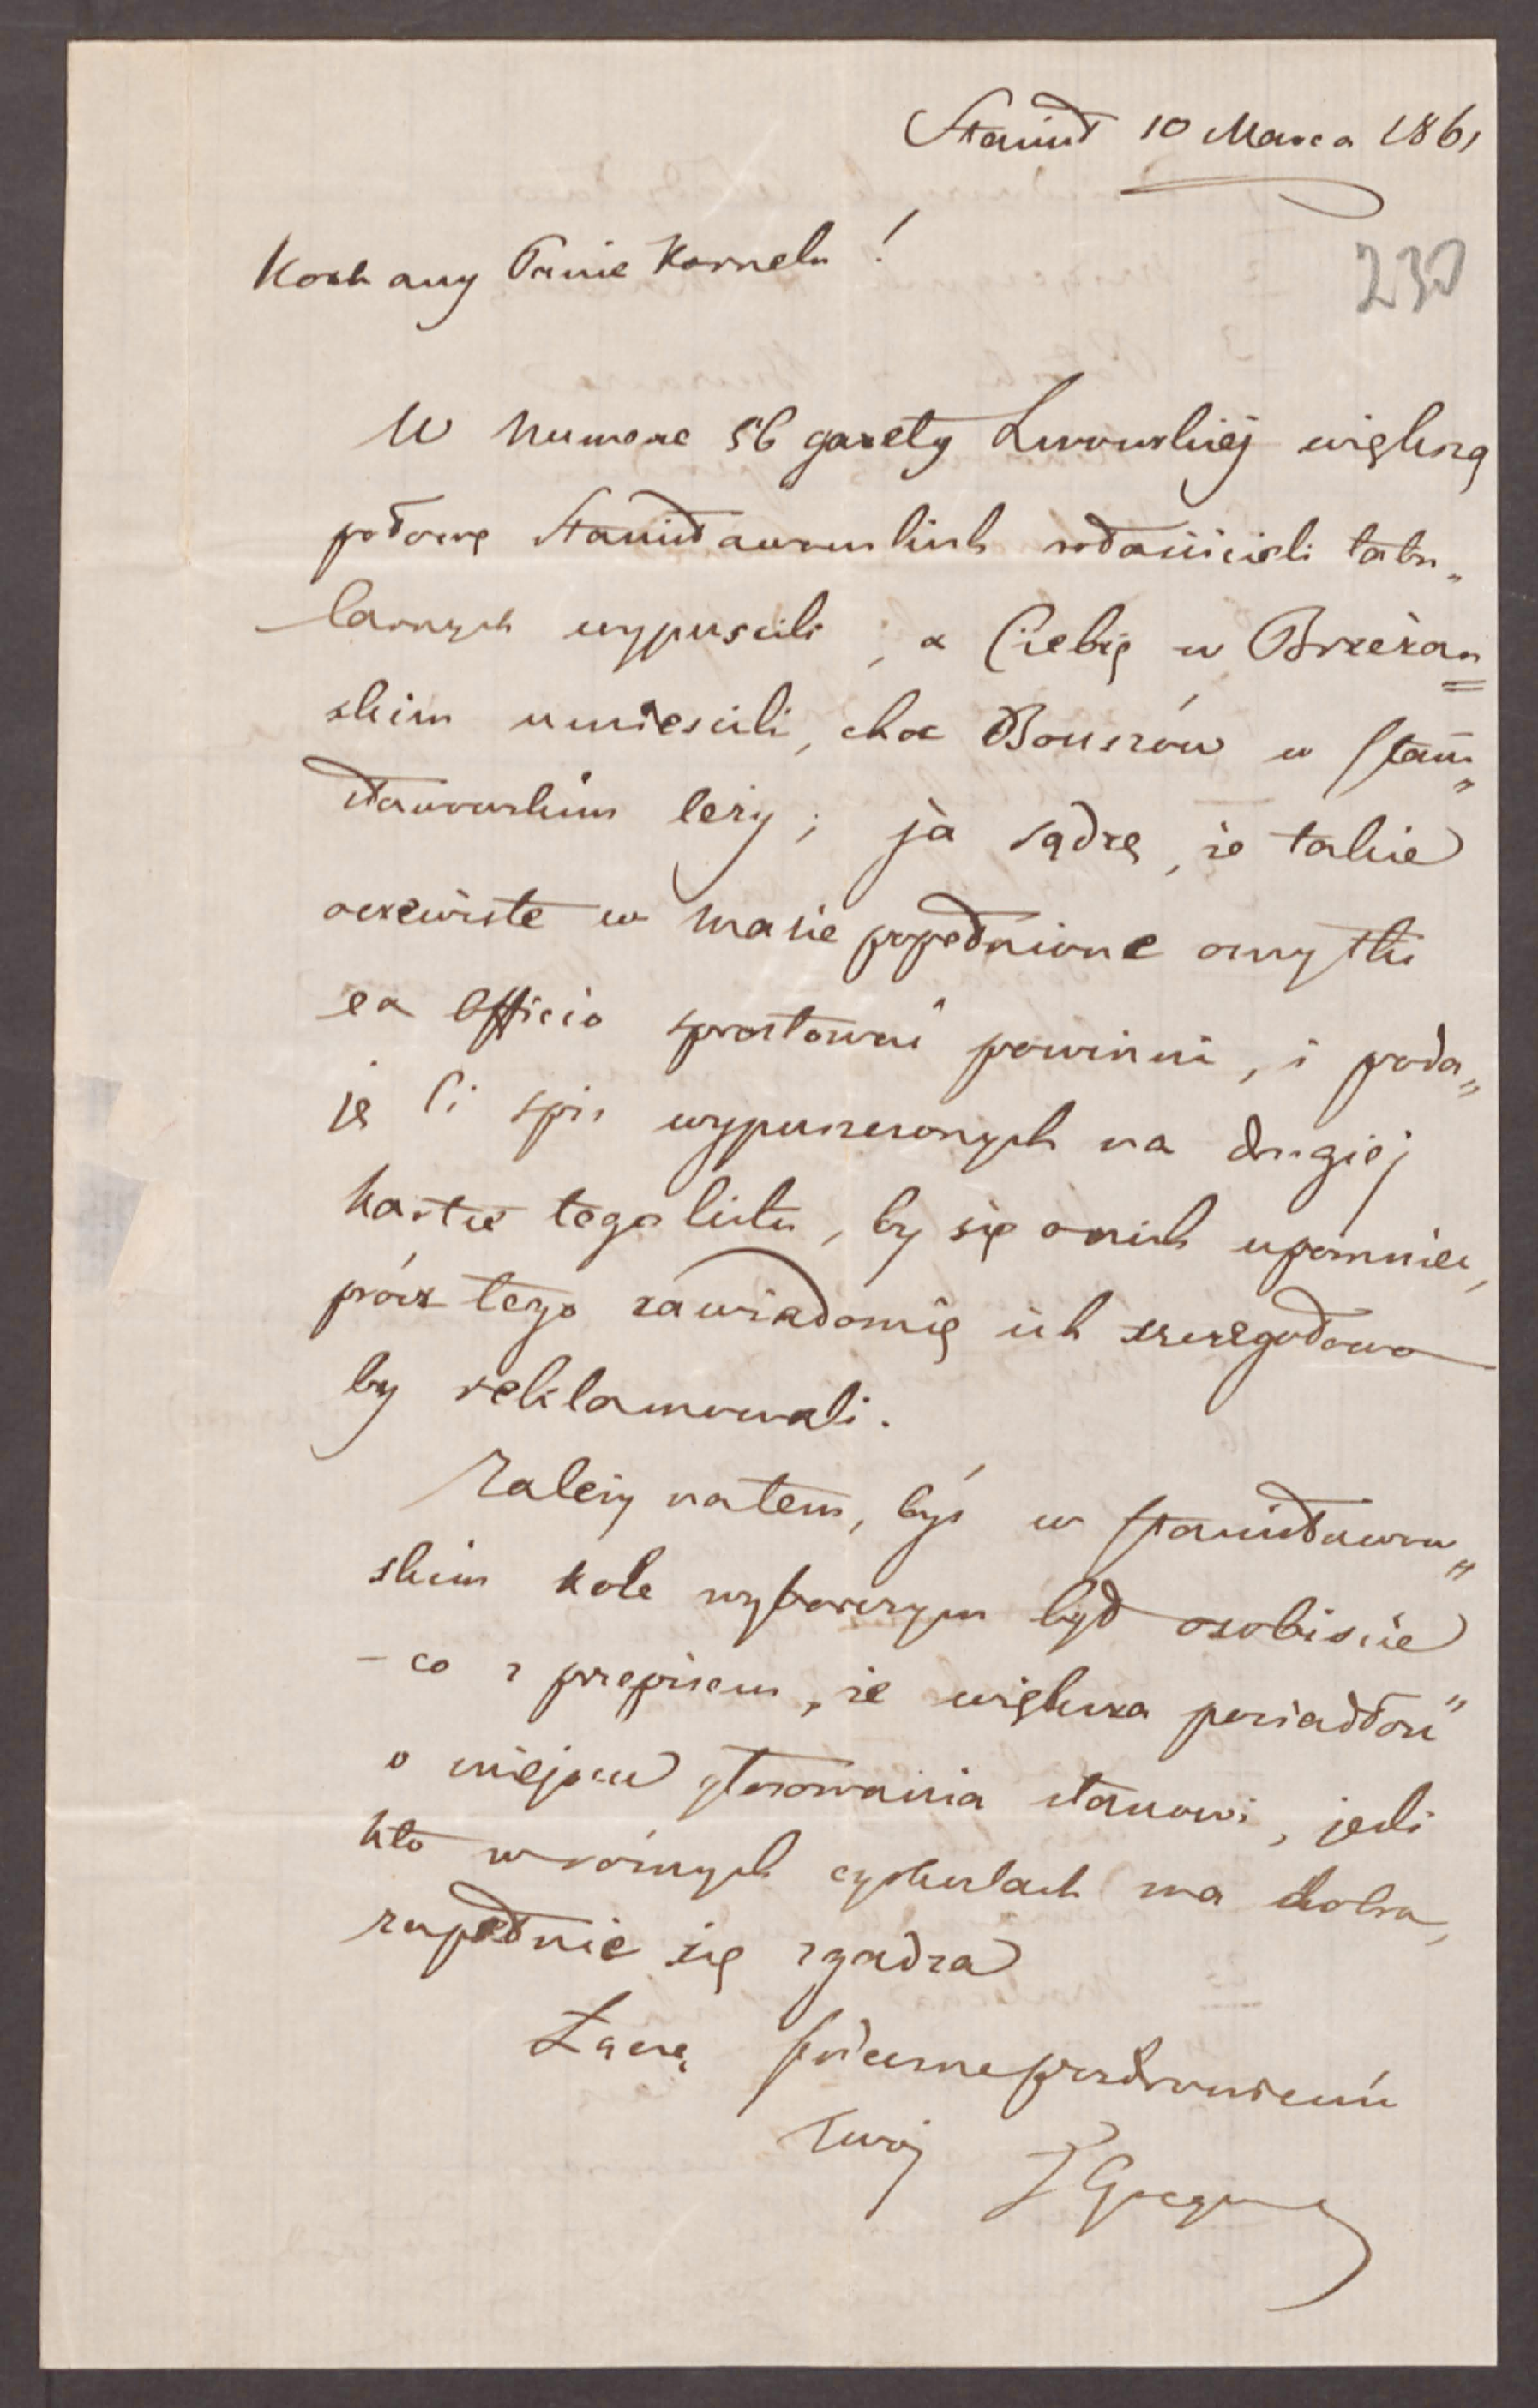 Stanisł 10 Marca 1861
230
Kochany Panie Kornelu!
W numerze 56 gazety Lwowskiej większą
połowę Stanisławowskich właścicieli tabu„
larnych wypuścili, a Ciebie w Brzeżan„
skim umieścili, choc Bouszów w Stani„
sławowskim leży; ja sądzę, że takie
oczewiste w masie popełnione omyłki
ex officio sprostować powinni, i poda„
ję Ci spis wypuszczonych na drugiej
kartce tego listu, by się o nich upomnieć,
prócz tego zawiadomię ich szczegołowo
by reklamowali.
Zależy natem, byś w Stanisławow„
skim kole wyborczym był osobiście
– co z przepisem, „że większa posiadłość"
o miejscu głosowania stanowi, jeśli
kto w różnych cyrkułach ma dobra,
zupełnie się zgadza
Łączę serdeczne pozdrowienie
Twój